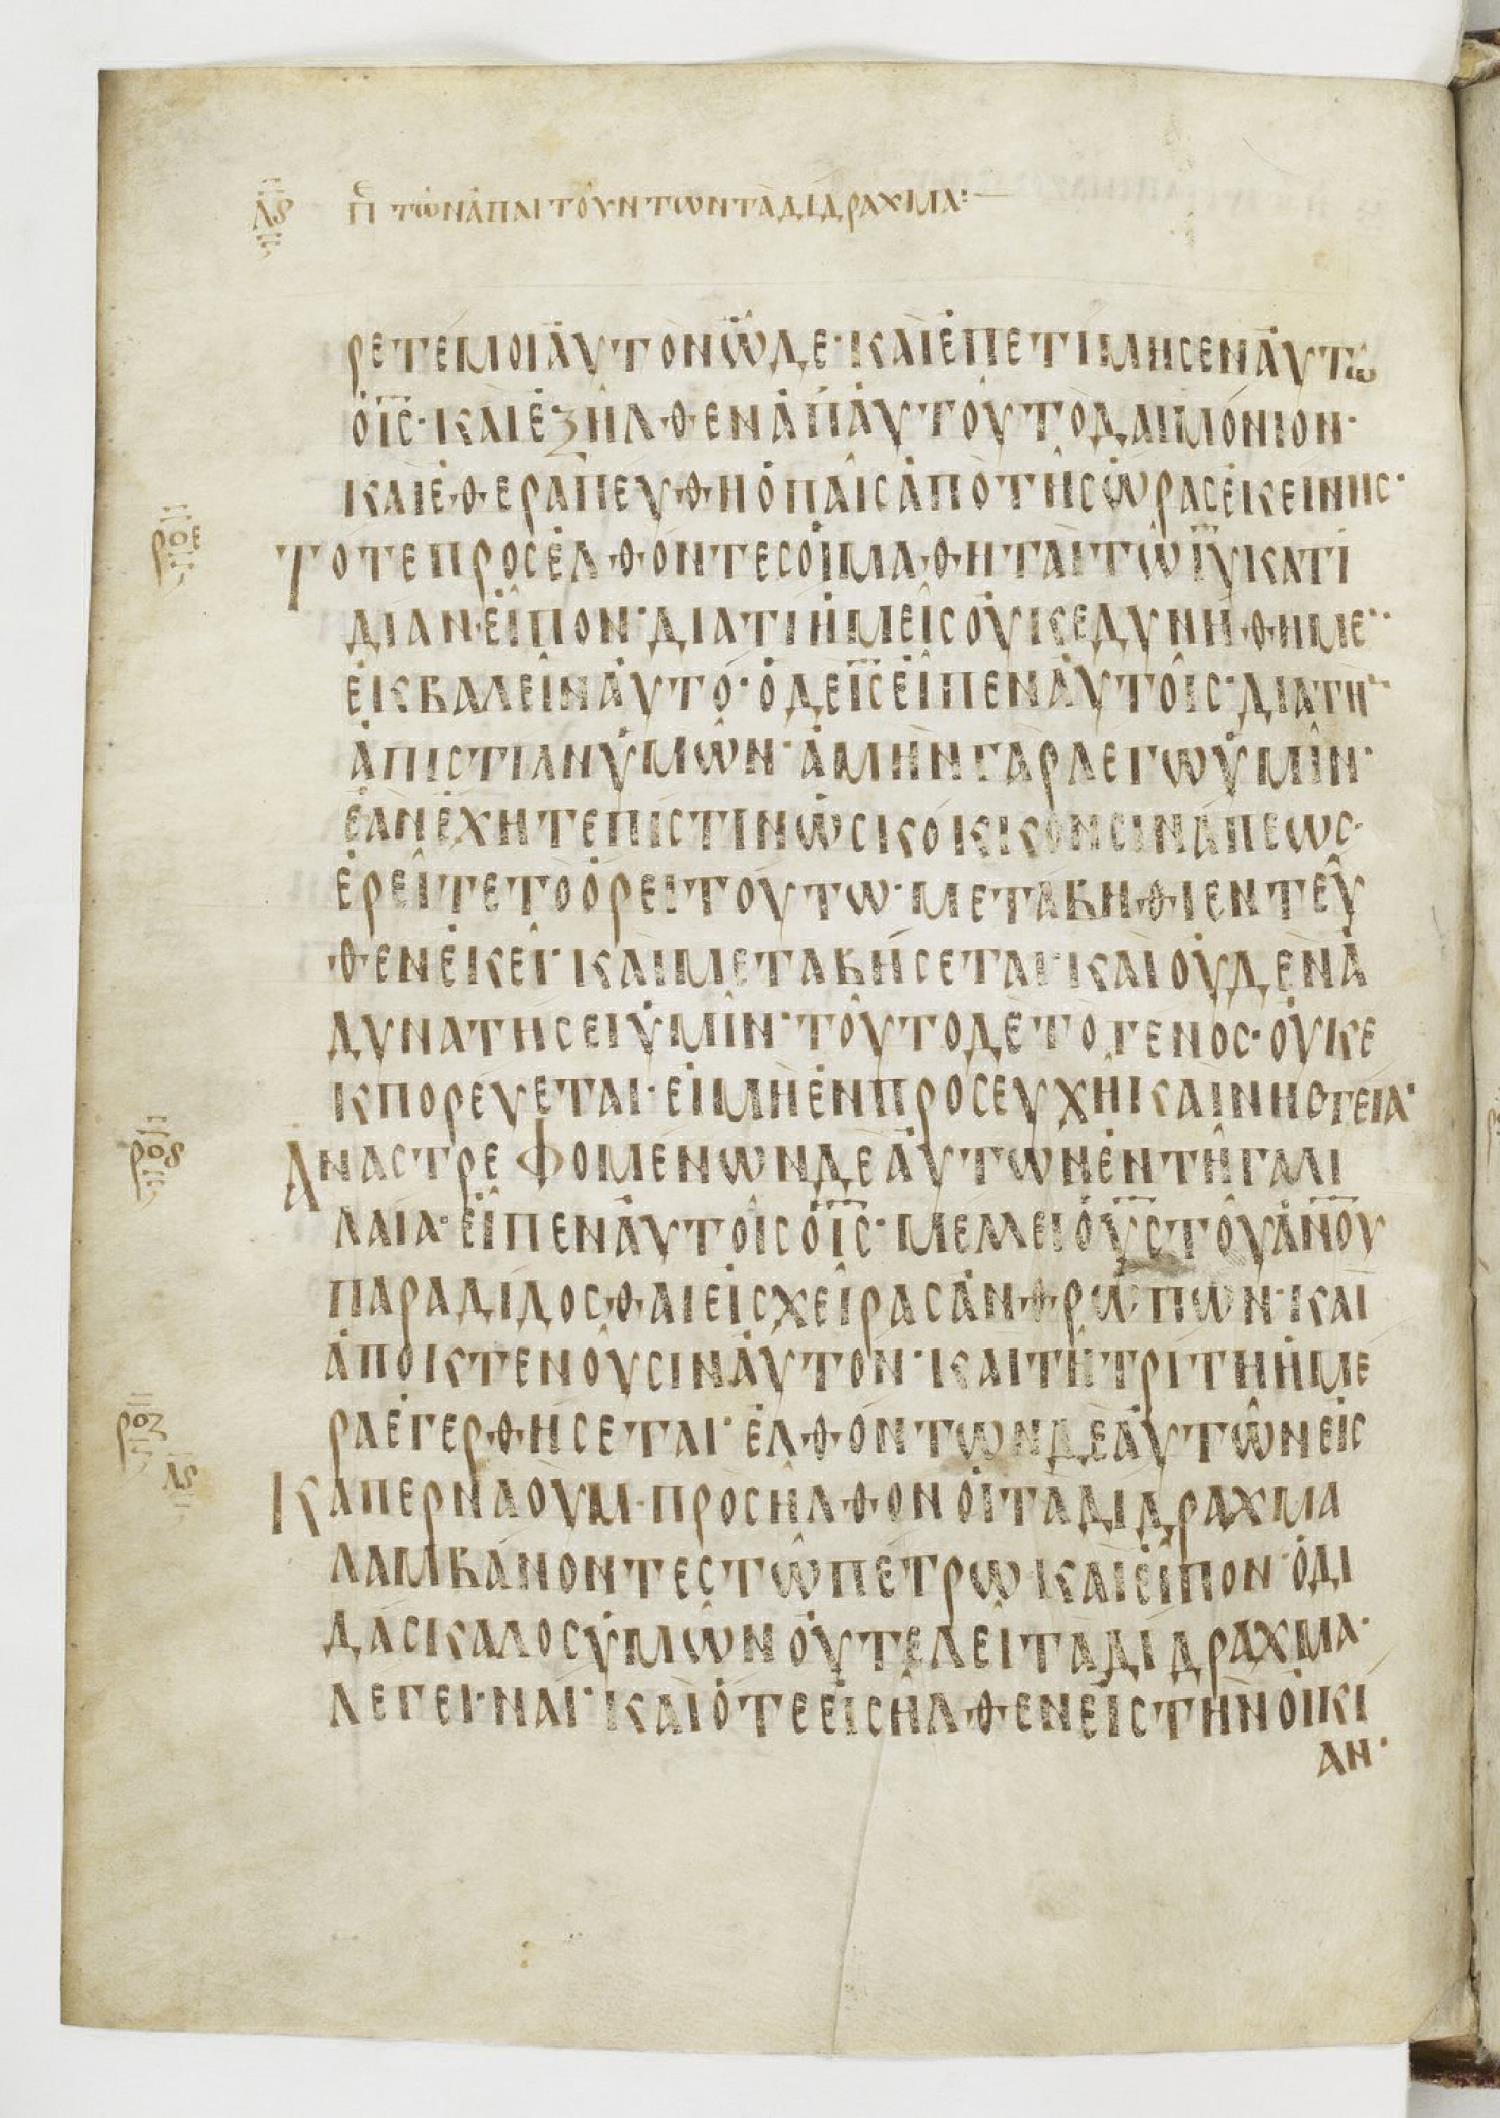 ΛϚ ΠΕ ΤΩΝ ἈΠΑΙΤΟΎΝΤΩΝ ΤᾺ ΔΊΔΡΑΧΜΑ:
ΡΕΤΕ ΜΟΙ ἈΥΤΟΝ Ὧ̈ΔΕ· ΚΑῚ ἘΠΕΤΙΜΗΣΕΝ ἈΥΤΩ
Ὁ ΙΣ· ΚΑΙ ἘΞΗΛΘΕΝ ἈΠ ἈΥΤΟΥ ΤΟ ΔΑΙΜΌΝΙΟΝ·
ΚΑῚ ἘΘΕΡΑΠΕΥΘΗ Ὁ ΠΑΙΣ ἈΠΟ ΤΗΣ ὩΡΑΣ ἘΚΕΙΝΗΣ·
ΡΟΕ ΤΟΤΕ ΠΡΟΣΕΛΘΟΝΤΕΣ ΟἹ ΜΑΘΗΤΑΙ ΤΩ ΙΥ ΚΑΤΙ
ΔΙΑΝ· ΕἸΠΟΝ· ΔΙΑΤΙ ἩΜΕΙΣ ΟΥΚ ΕΔΥΝΗΘΗΜΕ
ἘΚΒΑΛΕΙΝ ἈΥΤΟ· Ὁ ΔΕ ΙΣ ΕἸΠΕΝ ἈΥΤΟΙΣ· ΔΙΑ ΤΗ
ἈΠΙΣΤΙΑΝ ὙΜΩΝ· ἈΜΗΝ ΓΑΡ ΛΕΓΩ ὙΜΙΝ·
ἘΑΝ ἘΧΗΤΕ ΠΙΣΤΙΝ ὩΣ ΚΟΚΚΟΝ ΣΙΝΑΠΕΩΣ·
ἘΡΕΙΤΕ ΤΟ ὈΡΕΙ ΤΟΥΤΩ· ΜΕΤΑΒΗΘΙ ΕΝΤΕΥ
ΘΕΝ ἘΚΕΙ· ΚΑΙ ΜΕΤΑΒΗΣΕΤΑΙ· ΚΑΙ ΟΥΔΕΝ Ἀ
ΔΥΝΑΤΗΣΕΙ ὙΜΙΝ· ΤΟΥΤΟ ΔΕ ΤΟ ΓΕΝΟΣ· ΟΥΚ Ε
ΚΠΟΡΕΥΕΤΑΙ· ΕΙ ΜΗ ἘΝ ΠΡΟΣΕΥΧΗ ΚΑΙ ΝΗΣΤΕΙΑ·
ΡΟϚ ἈΝΑΣΤΡΕΦΟΜΕΝΩΝ ΔΕ ἈΥΤΩΝ ἘΝ ΤΗ ΓΑΛΙ
ΛΑΙΑ· ΕἸΠΕΝ ἈΥΤΟΙΣ Ὁ ΙΣ· ΜΕΛΛΕΙ Ὁ ΥΣ ΤΟΥ ἈΝΟΥ
ΠΑΡΑΔΙΔΟΣΘΑΙ ΕἸΣ ΧΕΙΡΑΣ ἈΝΘΡΩΠΩΝ· ΚΑΙ
ἈΠΟΚΤΕΝΟΥΣΙΝ ἈΥΤΟΝ· ΚΑΙ ΤΗ ΤΡΙΤΗ ἩΜΕ
ΡΑ ΕΓΕΡΘΗΣΕΤΑΙ· ἘΛΘΟΝΤΩΝ ΔΕ ἈΥΤΩΝ ΕἸΣ
ΡΟΖ ΛϚ ΚΑΠΕΡΝΑΟΥΜ· ΠΡΟΣΗΛΘΟΝ ΟἹ ΤΑ ΔΙΔΡΑΧΜΑ
ΛΑΜΒΑΝΟΝΤΕΣ ΤΩ ΠΕΤΡΩ· ΚΑΙ ΕἸΠΟΝ· Ὁ ΔΙ
ΔΑΣΚΑΛΟΣ ὙΜΩΝ ΟΥ ΤΕΛΕΙ ΤΑ ΔΙΔΡΑΧΜΑ·
ΛΕΓΕΙ· ΝΑΙ· ΚΑΙ ὉΤΕ ΕἸΣΗΛΘΕΝ ΕἸΣ ΤΗΝ ΟΙΚΙ
ΑΝ·